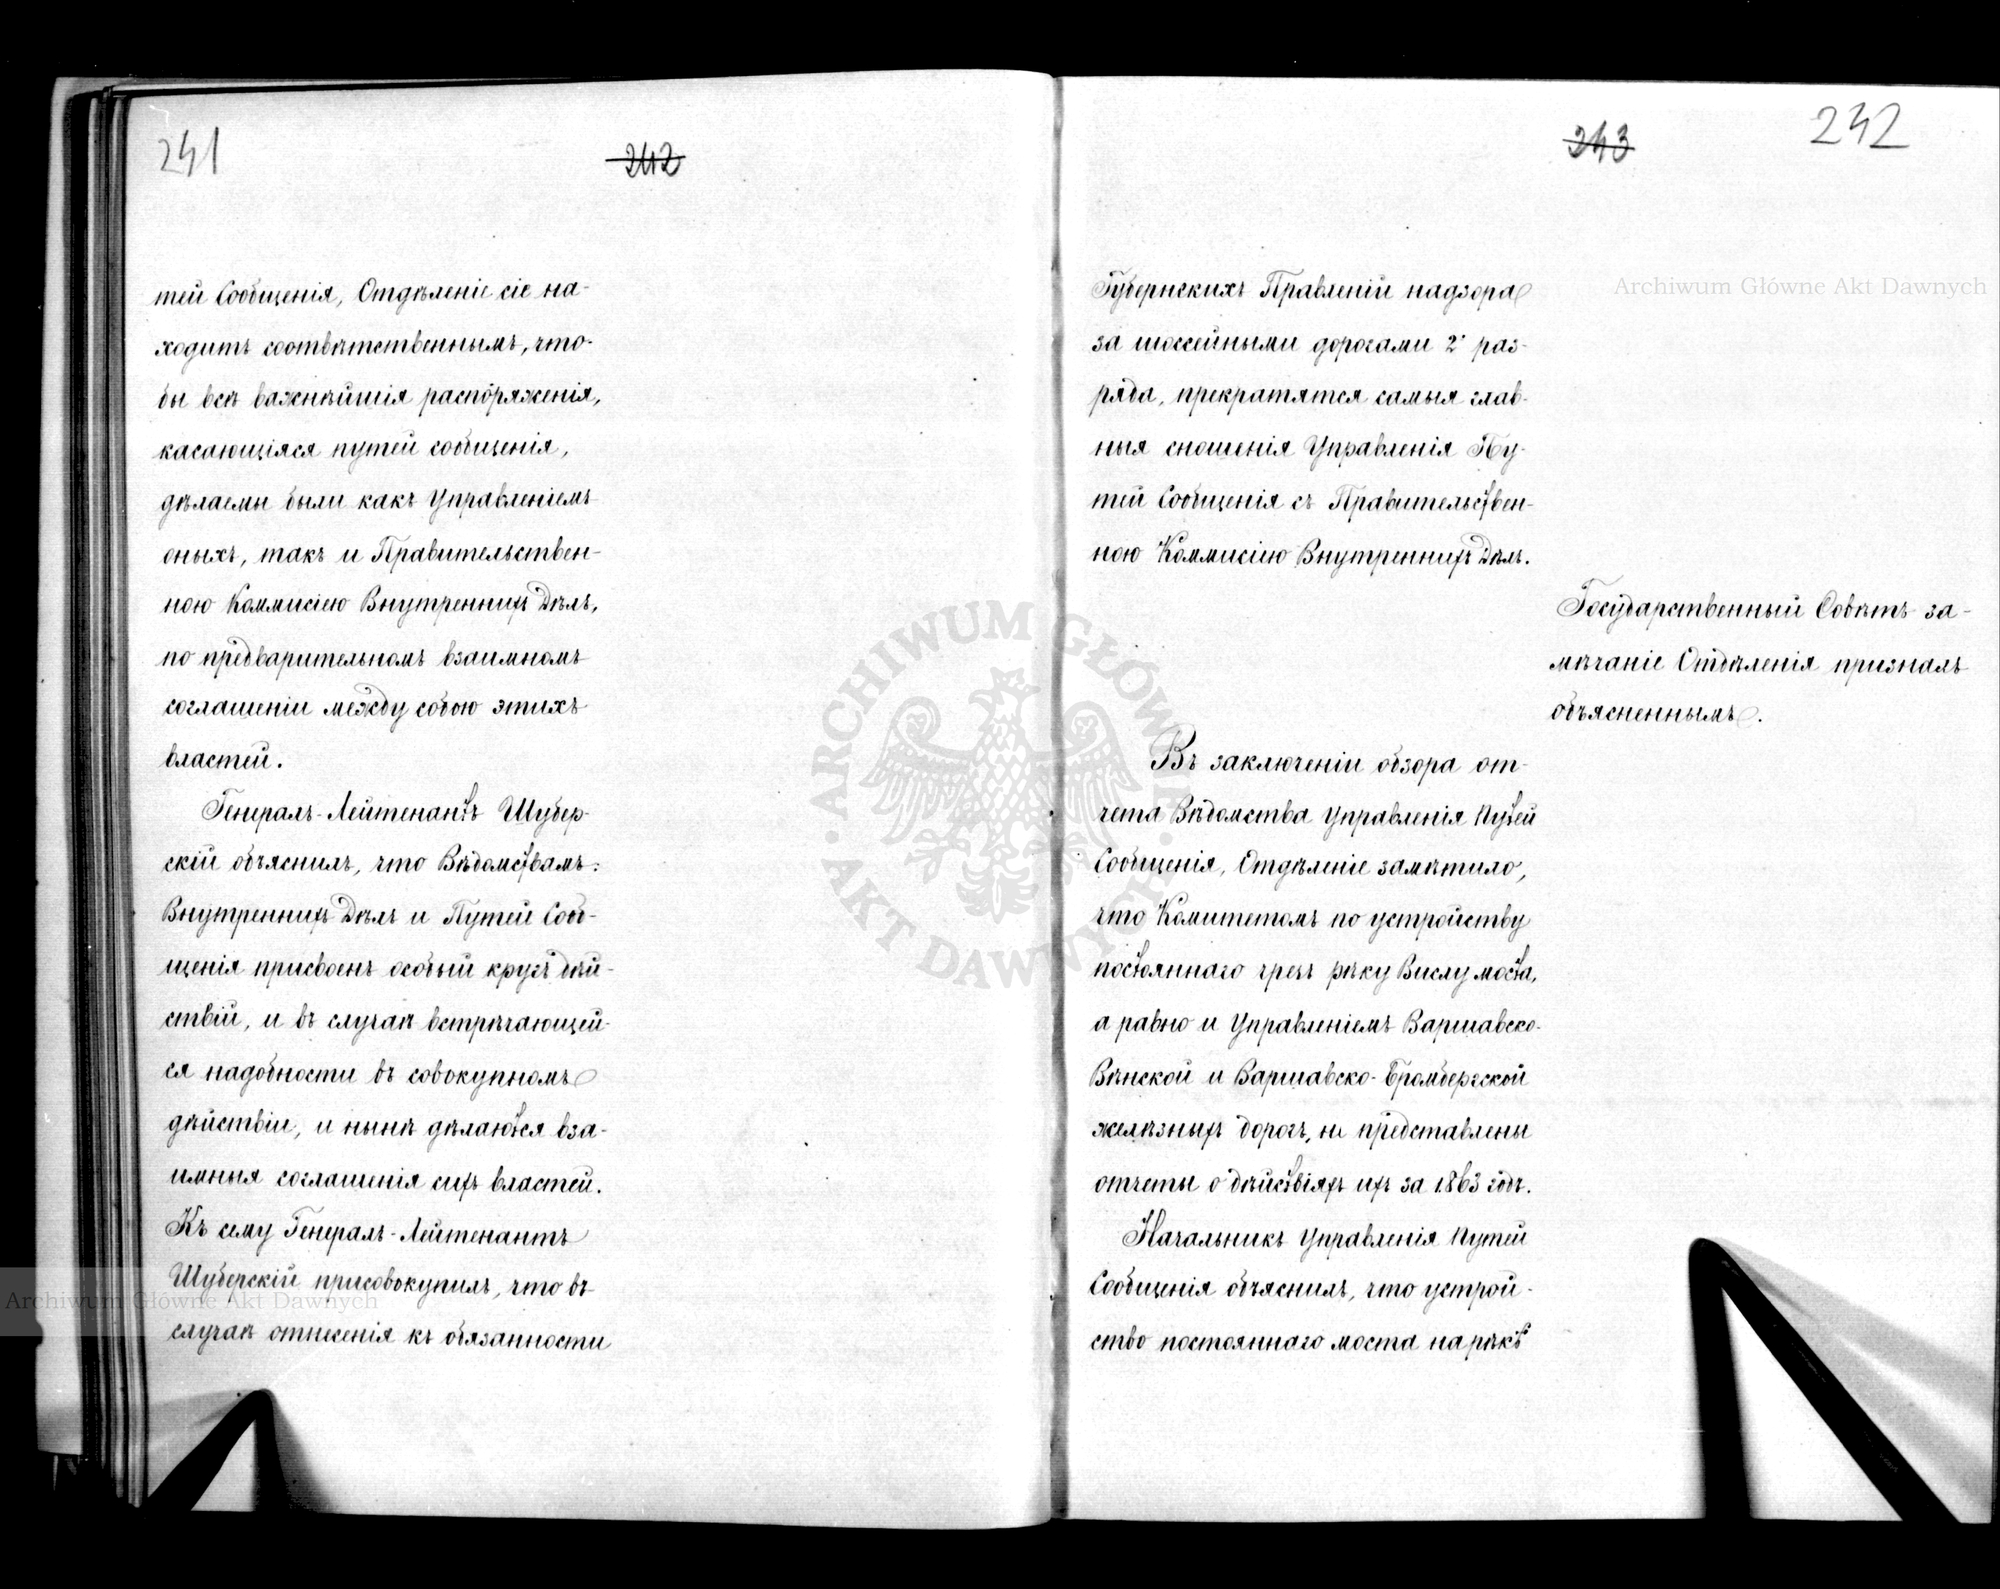 241
242
тей Сообщенія, Отдѣленіе сіе на-
ходитъ соотвѣтственнымъ, что-
бы всѣ важнѣйшія распоряженія,
касающіяся путей сообщенія,
дѣлаемы были какъ Управленіемъ
оныхъ, такъ и Правительствен-
ною Коммисіею Внутреннихъ Дѣлъ,
по предварительномъ взаимномъ
соглашеніи между собою этихъ
властей.
Генералъ-Лейтенантъ Шубер-
скій объяснилъ, что Вѣдомствамъ:
Внутреннихъ Дѣлъ и Путей Сооб-
щенія присвоенъ особый кругъ дѣй-
ствій, и въ случаѣ встрѣчающей-
ся надобности въ совокупномъ
дѣйствіи, и нынѣ дѣлаются вза-
имныя соглашенія сихъ властей.
Къ сему Генералъ-Лейтенантъ
Шуберскій присовокупилъ, что въ
случаѣ отнесенія къ обязанности
243
242
Губернскихъ Правленій надзора
за шоссейными дорогами 2 раз-
ряда, прекратятся самыя глав-
ныя сношенія Управленія Пу-
тей Сообщенія съ Правительствен-
ною Коммисіею Внутреннихъ Дѣлъ.
Государственный Совѣтъ за-
мѣчаніе Отдѣленія призналъ
объясненнымъ.
Въ заключеніи обзора от-
чета Вѣдомства Управленія Путей
Сообщенія, Отдѣленіе замѣтило,
что Комитетомъ по устройству
постояннаго чрезъ рѣку Вислу моста,
а равно и Управленіемъ Варшавско-
Вѣнской и Варшавско-Бромбергской
желѣзныхъ дорогъ, не представлены
отчеты о дѣйствіяхъ ихъ за 1863 годъ.
Начальникъ Управленія Путей
Сообщенія объяснилъ, что устрой-
ство постояннаго моста на рѣкѣ
Archiwum Główne Akt Dawnych
Archiwum Główne Akt Dawnych
ARCHIWUM GŁÓWNE AKT DAWNYCH